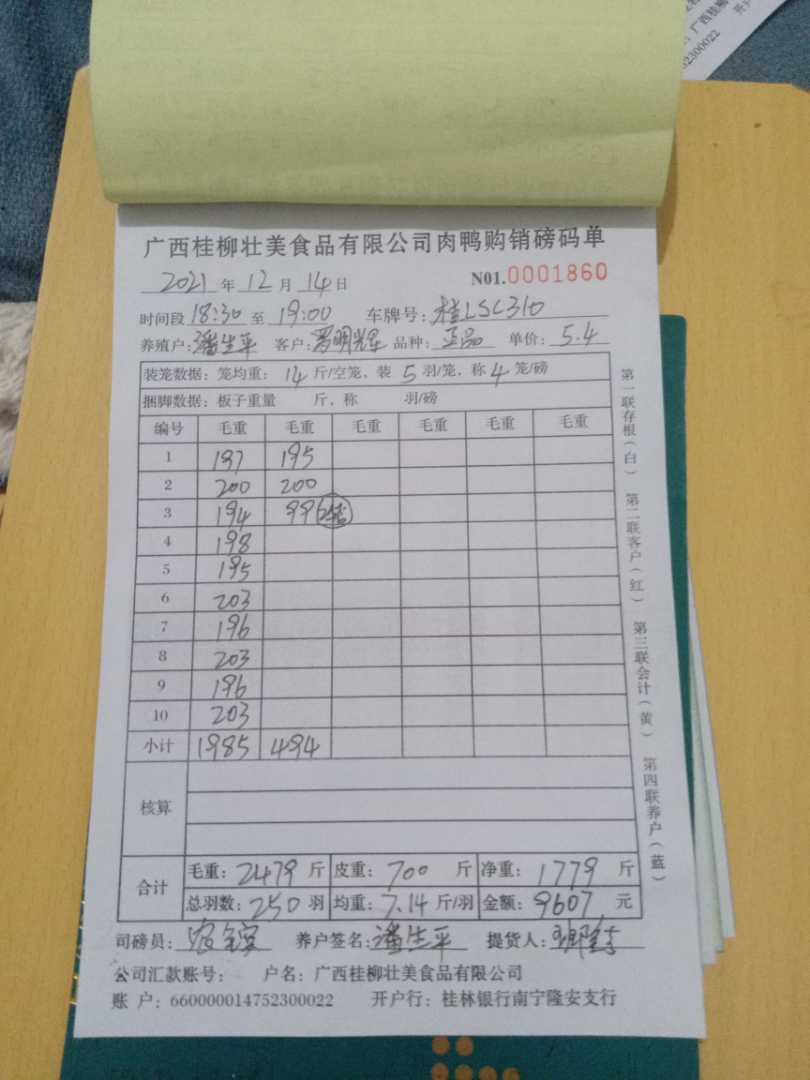 广西桂柳
52300022
开户
广西桂柳壮美食品有限公司肉鸭购销磅码单
2021年12月14日 N01.0001860
时间段18:30至19:00 车牌号:桂LSC310
养殖户:潘生平 客户:罗明辉 品种:正品 单价:5.4
装笼数据:笼均重:14斤/空笼、装5羽/笼,称4笼/磅
捆脚数据:板子重量 斤,称 羽/磅
编号 毛重 毛重 毛重 毛重 毛重 毛重
1 197 195
2 200 200
3 194 99
4 198
5 195
6 203
7 196
8 203
9 196
10 203
小计 1985 494
核算
合计 毛重:2479斤 皮重:700斤 净重:1779斤
总羽数:250羽 均重:7.14斤/羽 金额:9607元
司磅员: 养户签名:潘生平 提货人:
公司汇款账号: 户名:广西桂柳壮美食品有限公司
账 户:660000014752300022 开户行:桂林银行南宁隆安支行
第一联存根(白) 第二联客户(红) 第三联会计(黄) 第四联养户(蓝)